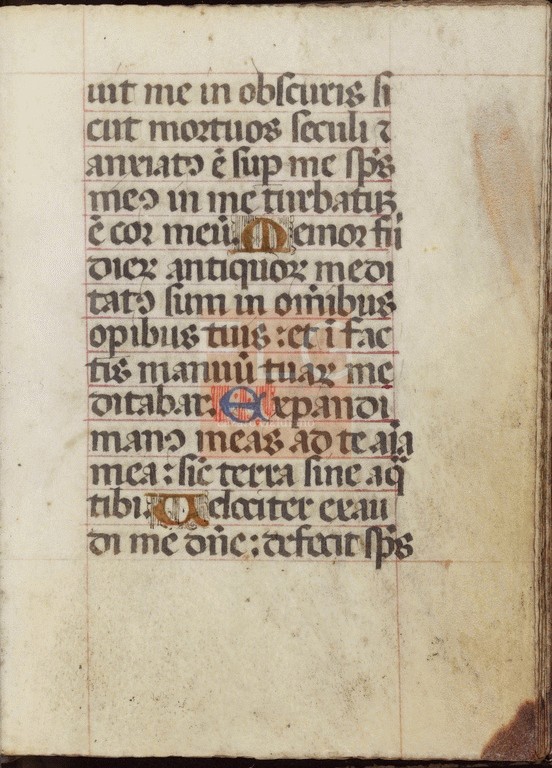 uit me in obscuris si
cut mortuos seculi ⁊
anxiatꝯ ē sup me sp̄s
meꝯ in me turbatuꝫ
ē cor meū. Memor fui
dierꝝ antiquorꝝ medi
tatꝯ sum in om̄ibus
opibus tuis : et ī fac
tis manuū tuaꝝ me
ditabar. Expandi
manꝯ meas ad te aīa
mea : sic̄ terra sine aq̄
tibi. Velociter exau
di me dn̄e : defecit sp̄s